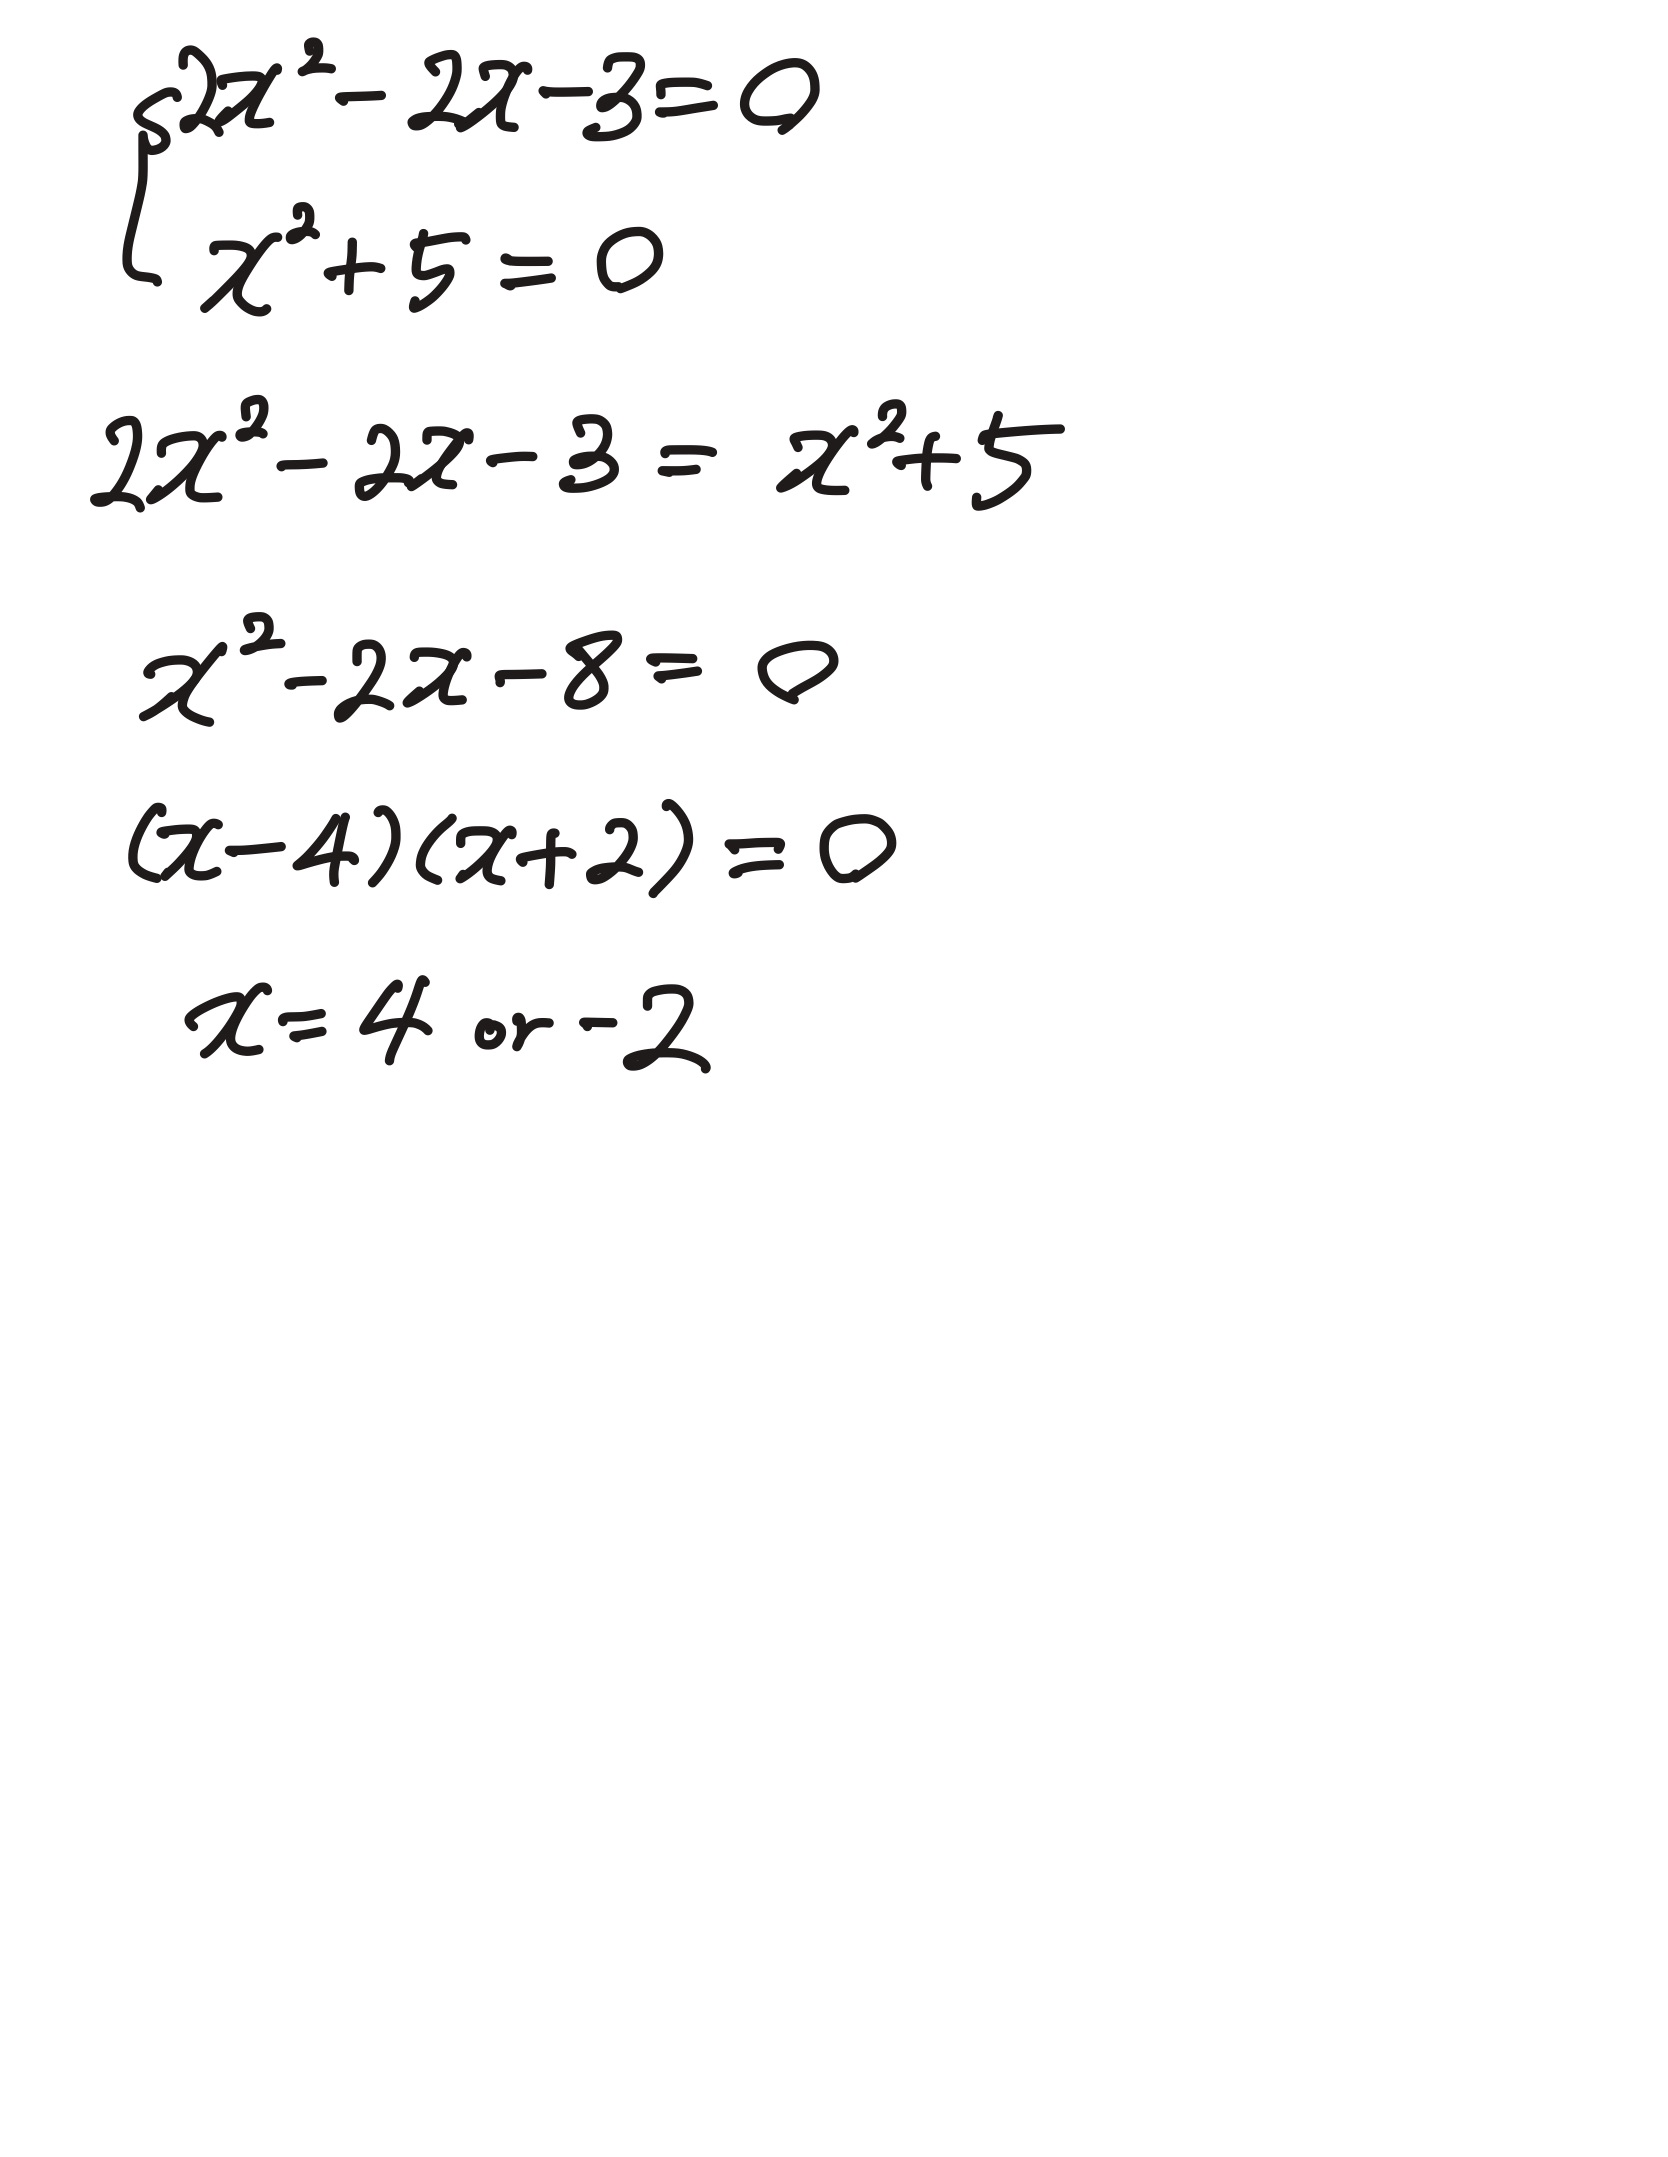 {2x² - 2x - 3 = 0
x² + 5 = 0
2x² - 2x - 3 = x² + 5
x² - 2x - 8 = 0
(x - 4)(x + 2) = 0
x = 4 or -2